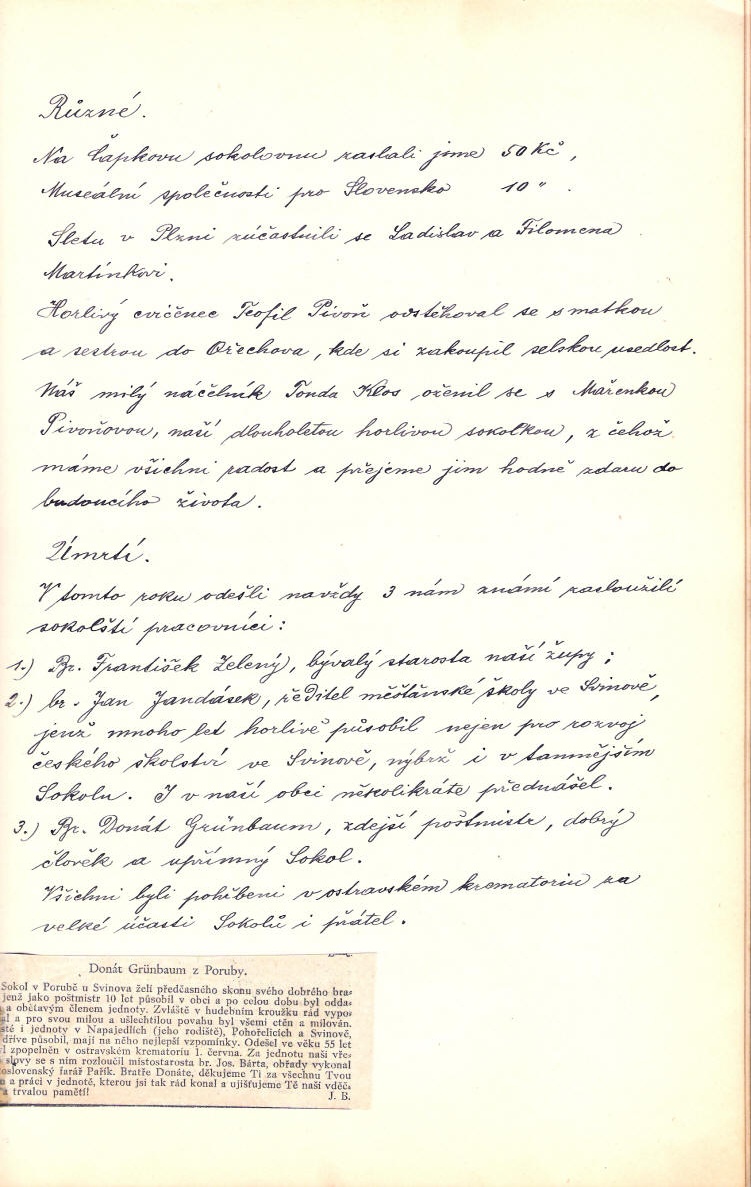 Různé.
Na Čapkovu sokolovnu zaslali jsme 50 Kč,
Museální společnosti pro Slovensko 10 " .
Sletu v Plzni zúčastnili se Ladislav a Filomena
Martínkovi.
Horlivý cvičenec Teofil Pivoň odstěhoval se s matkou
a sestrou do Ořechova, kde si zakoupil selskou usedlost.
Náš milý náčelník Tonda Klos oženil se s Mařenkou
Pivoňovou, naší dlouholetou horlivou sokolkou, z čehož
máme všichni radost a přejeme jim hodně zdaru do
budoucího života.
Úmrtí.
V tomto roku odešli navždy 3 nám známí zasloužilí
sokolští pracovníci:
1.) Br. František Zelený, bývalý starosta naší župy;
2.) br. Jan Jandásek, ředitel měšťanské školy ve Svinově,
jenž mnoho let horlivě působil nejen pro rozvoj
českého školství ve Svinově, nýbrž i v tamnějším
Sokolu. I v naší obci několikráte přednášel.
3.) Br. Donát Grünbaum, zdejší poštmistr, dobrý
člověk a upřímný Sokol.
Všichni byli pohřbeni v ostravském krematoriu za
velké účasti Sokolů i přátel.
Donát Grünbaum z Poruby.
Sokol v Porubě u Svinova želí předčasného skonu svého dobrého bra-
jenž jako poštmistr 10 let působil v obci a po celou dobu byl odda-
a obětavým členem jednoty. Zvláště v hudebním kroužku rád vypo-
l a pro svou milou a ušlechtilou povahu byl všemi ctěn a milován.
sté i jednoty v Napajedlích (jeho rodiště), Pohořelicích a Svinově,
dříve působil, mají na něho nejlepší vzpomínky. Odešel ve věku 55 let
l zpopelněn v ostravském krematoriu 1. června. Za jednotu naši vře-
slovy se s ním rozloučil místostarosta br. Jos. Bárta, obřady vykonal
oslovenský farář Pařík. Bratře Donáte, děkujeme Ti za všechnu Tvou
u a práci v jednotě, kterou jsi tak rád konal a ujišťujeme Tě naší vděč-
a trvalou pamětí!
J. B.